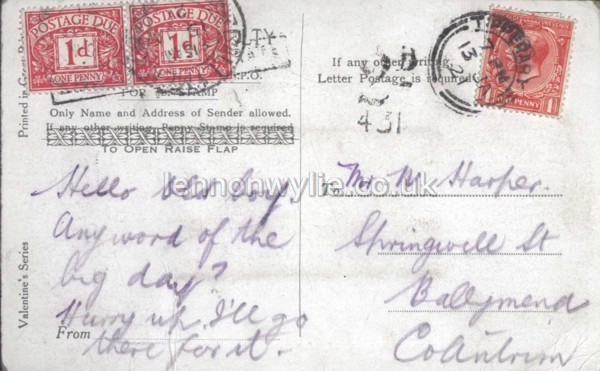 POSTAGE DUE
1d
ONE PENNY
POSTAGE DUE
1d
ONE PENNY
LTY
G.P.O.
FOR STAMP
Only Name and Address of Sender allowed.
If any other writing, Penny Stamp is required
TO OPEN RAISE FLAP
If any other writing,
Letter Postage is required
431
PENNY
1
Printed in Great
Valentine's Series
Hello Old boy.
Any word of the
big day?
Hurry up, I'll go
there for it.
From
To
Mr McHarper.
Springwell St
Ballymena
Co Antrim
lennonwylie.co.uk